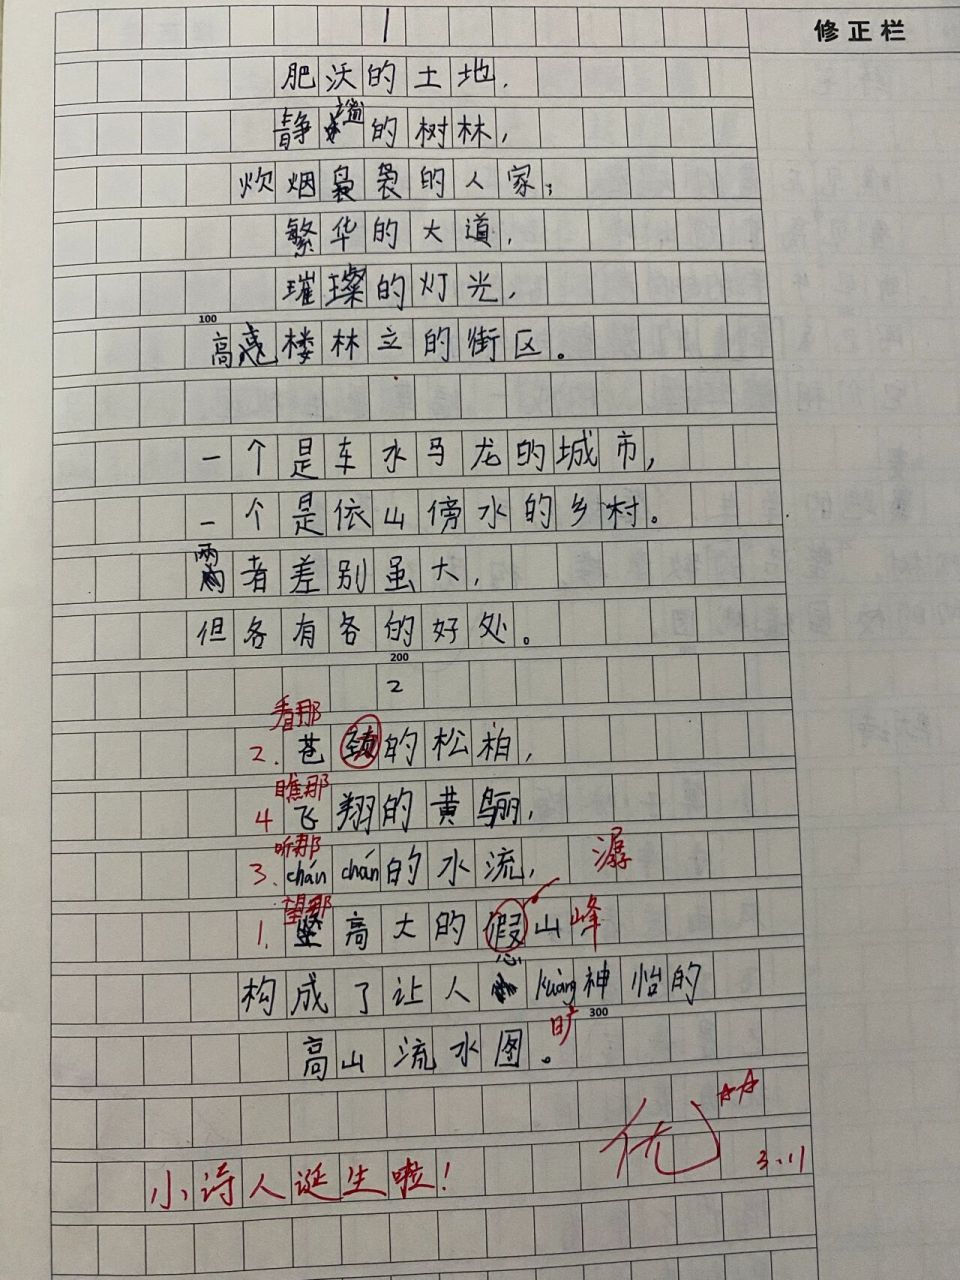 修正栏
1
肥沃的土地，
静谧的树林，
炊烟袅袅的人家；
繁华的大道，
璀璨的灯光，
100
高楼林立的街区。
一个是车水马龙的城市，
一个是依山傍水的乡村。
两者差别虽大，
但各有各的好处。
200
2
看那
2.苍劲的松柏，
瞧那
4飞翔的黄鹂，
听那
3.chán chán的水流，潺
望那
1.高大的假山峰
构成了让人心kuàng神怡的
旷
300
高山流水图。
优
3.11
小诗人诞生啦！